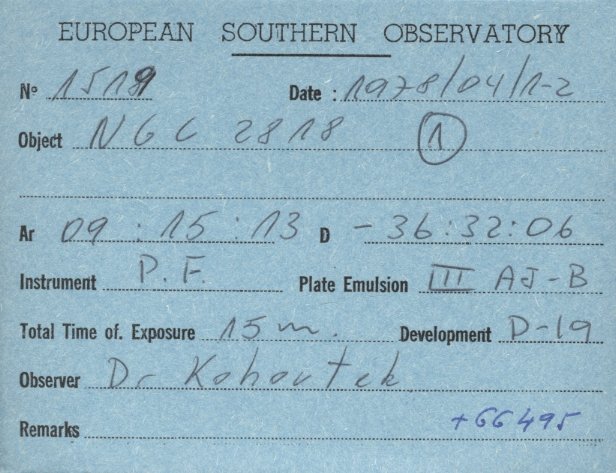 EUROPEAN SOUTHERN OBSERVATORY
N° 1519 Date : 1978/04/1-2
Object NGC 2818 ①
Ar 09 : 15 : 13 D -36:32:06
Instrument P.F. Plate Emulsion III AJ-B
Total Time of. Exposure 15 m. Development D-19
Observer Dr Kohoutek
Remarks +66495